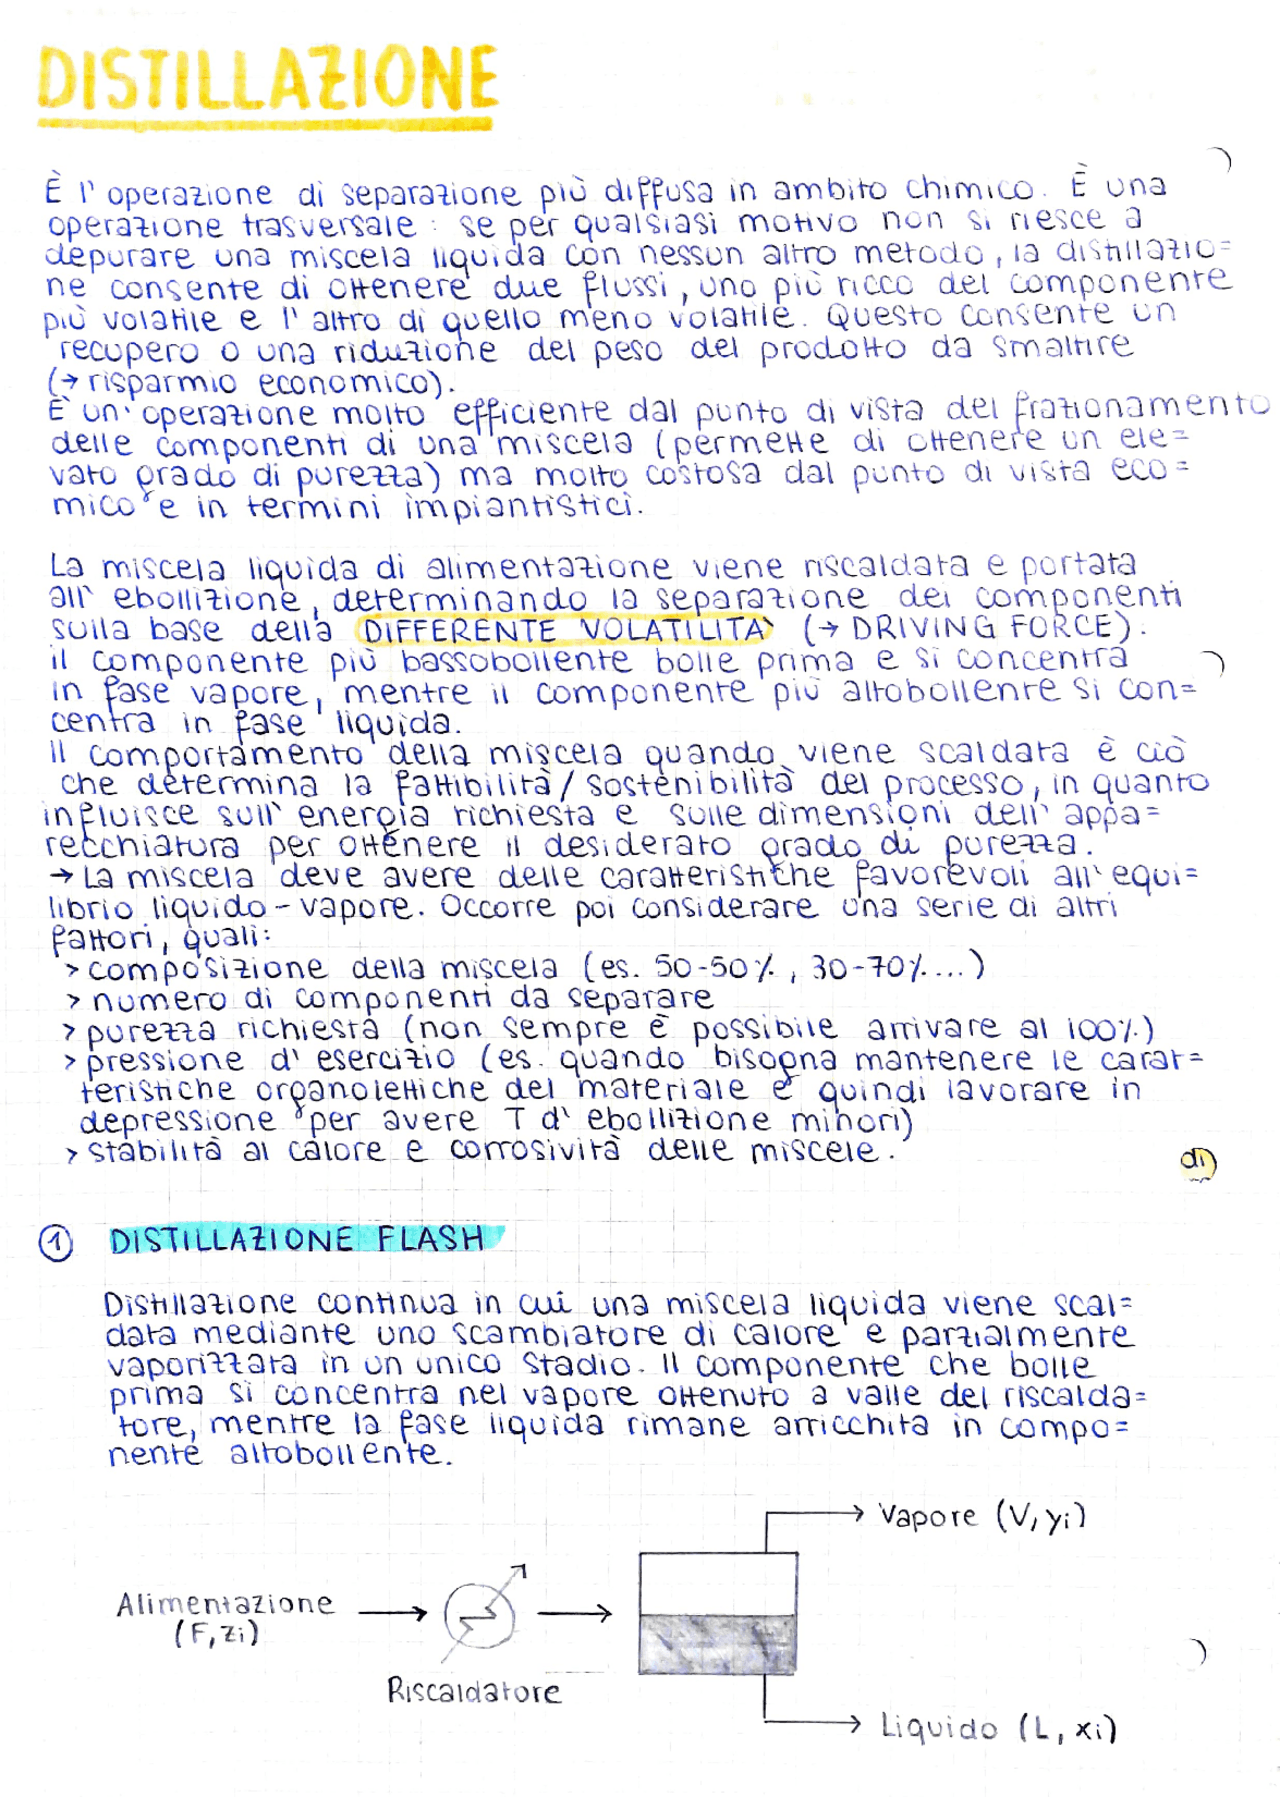 DISTILLAZIONE
È l'operazione di separazione più diffusa in ambito chimico. È una
operazione trasversale: se per qualsiasi motivo non si riesce a
depurare una miscela liquida con nessun altro metodo, la distillazio=
ne consente di ottenere due flussi, uno più ricco del componente
più volatile e l'altro di quello meno volatile. Questo consente un
recupero o una riduzione del peso del prodotto da smaltire
(→ risparmio economico).
È un'operazione molto efficiente dal punto di vista del frazionamento
delle componenti di una miscela (permette di ottenere un ele=
vato grado di purezza) ma molto costosa dal punto di vista eco=
mico e in termini impiantistici.
La miscela liquida di alimentazione viene riscaldata e portata
all'ebollizione, determinando la separazione dei componenti
sulla base della DIFFERENTE VOLATILITÀ (→ DRIVING FORCE).
il componente più bassobollente bolle prima e si concentra
in fase vapore, mentre il componente più altobollente si con=
centra in fase liquida.
Il comportamento della miscela quando viene scaldata è ciò
che determina la fattibilità/sostenibilità del processo, in quanto
influisce sull'energia richiesta e sulle dimensioni dell'appa=
recchiatura per ottenere il desiderato grado di purezza.
→ La miscela deve avere delle caratteristiche favorevoli all'equi=
librio liquido-vapore. Occorre poi considerare una serie di altri
fattori, quali:
> composizione della miscela (es. 50-50%, 30-70%...)
> numero di componenti da separare
> purezza richiesta (non sempre è possibile arrivare al 100%)
> pressione d'esercizio (es. quando bisogna mantenere le carat=
teristiche organolettiche del materiale e quindi lavorare in
depressione per avere T d'ebollizione minori)
> stabilità al calore e corrosività delle miscele.
di
1 DISTILLAZIONE FLASH
Distillazione continua in cui una miscela liquida viene scal=
data mediante uno scambiatore di calore e parzialmente
vaporizzata in un unico stadio. Il componente che bolle
prima si concentra nel vapore ottenuto a valle del riscalda=
tore, mentre la fase liquida rimane arricchita in compo=
nente altobollente.
Vapore (V, yi)
Alimentazione
(F, zi)
Riscaldatore
Liquido (L, xi)